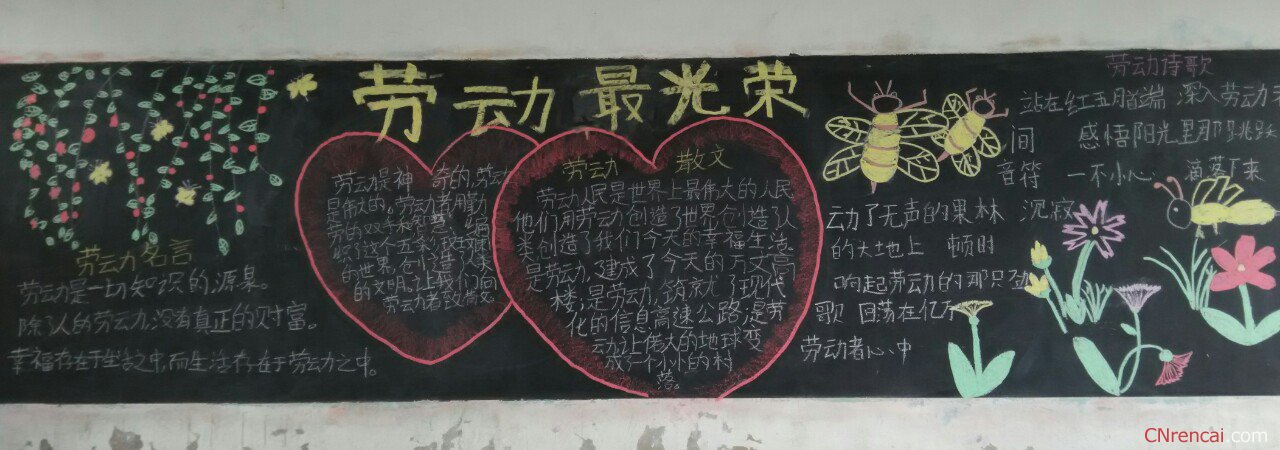 劳动最光荣
劳动名言
劳动是一切知识的源泉。
除了人的劳动,没有真正的财富。
幸福存在于生活之中,而生活存在于劳动之中。
劳动是神奇的,劳动
是伟大的。劳动者用勤
劳的双手和智慧,编
织了这个五彩
的世界,创造了人类
的文明,让我们向
劳动者致敬
劳动 散文
劳动人民是世界上最伟大的人民,
他们用劳动创造了世界,创造了人
类创造了我们今天的幸福生活。
是劳动,建成了今天的万丈高
楼;是劳动,筑就了现代
化的信息高速公路;是劳
动让伟大的地球变
成一个小小的村
落。
劳动诗歌
站在红五月首端 深入劳动
间 感悟阳光里那跳跃
音符 一不小心 滴落下来
动了无声的果林 沉寂
的大地上 顿时
响起劳动的那只
歌 回荡在亿万
劳动者心中
CNrencai.com